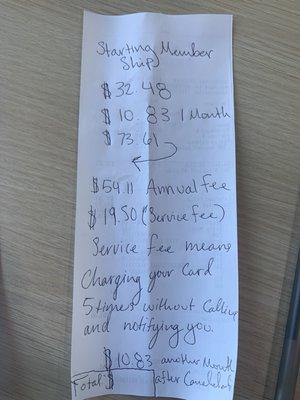 Starting Member
Ship
$32.48
$10.83 1 Month
$73.61
$54.11 Annual fee
$19.50 (Service fee)
Service fee means
Charging your Card
5 times without Calling
and notifying you.
$10.83 another Month
Total $ after